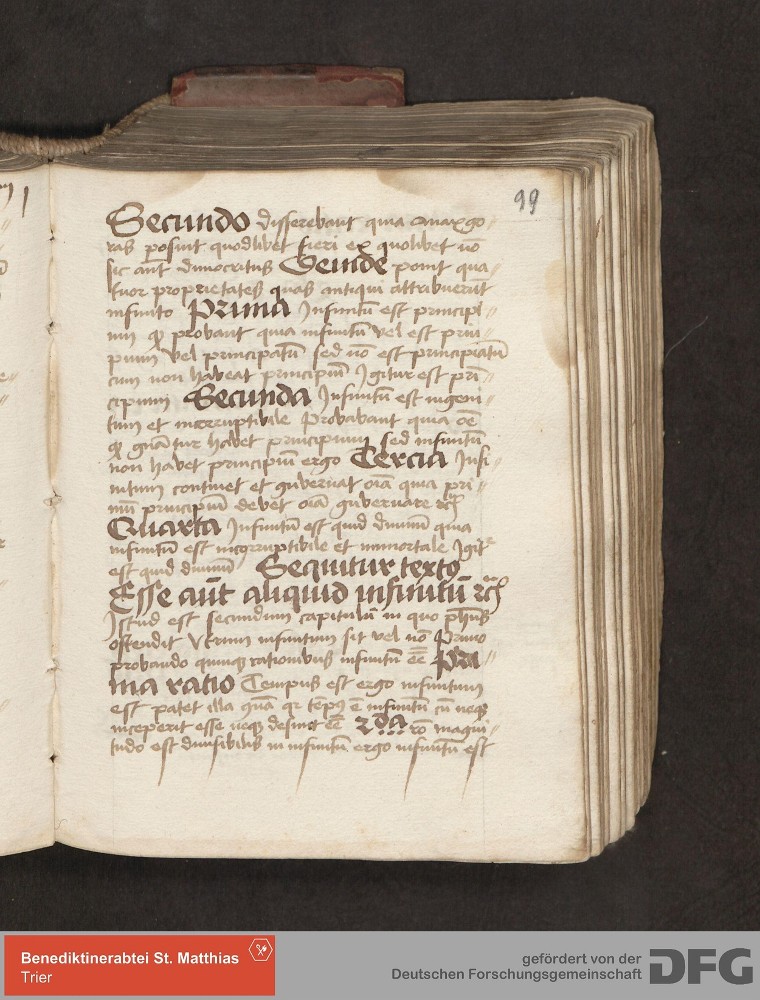 99
Secundo differebant quia Anaxgo-
ras posuit quodlibet fieri ex quolibet nō
sic aut dimocritus Deinde ponit qua-
tuor proprietates quas antiqui attribuerūt
infinito Prima Infinitū est principi-
um qꝫ probant quia infinitū vel est prin-
pium vel principatū sed nō est principiatū
cum non habeat principiū Igitur est prī-
cipium Secunda Infinitū est ingeni-
tum et incorruptibile Probabant quia oē
qꝫ gnātur habet principium sed infinitū
non habet principiū ergo Tercia Infi-
nitum continet et gubernat oīa quia pri-
mū principiū debet oīa gubernare rc̄
Quarta Infinitū est quid diuinū quia
infinitū est incorruptibile et immortale Igitʳ
est quid diuinū Sequitur texto
Esse aūt aliquid infinitū rc̄
Istud est secundum capitulū in quo ph̄us
ostendit Utrum infinitum sit vel nō Primo
probando quinqꝫ rationibus infinitū eē Pri-
ma ratio Tempus est ergo infinitum
est patet illa qr ē infinitū cū neqꝫ
inceperit esse neqꝫ desinet eē 2da rō magni-
tudo est diuisibilis in infinitū ergo infinitū est
Benediktinerabtei St. Matthias
Trier
gefördert von der
Deutschen Forschungsgemeinschaft
DFG